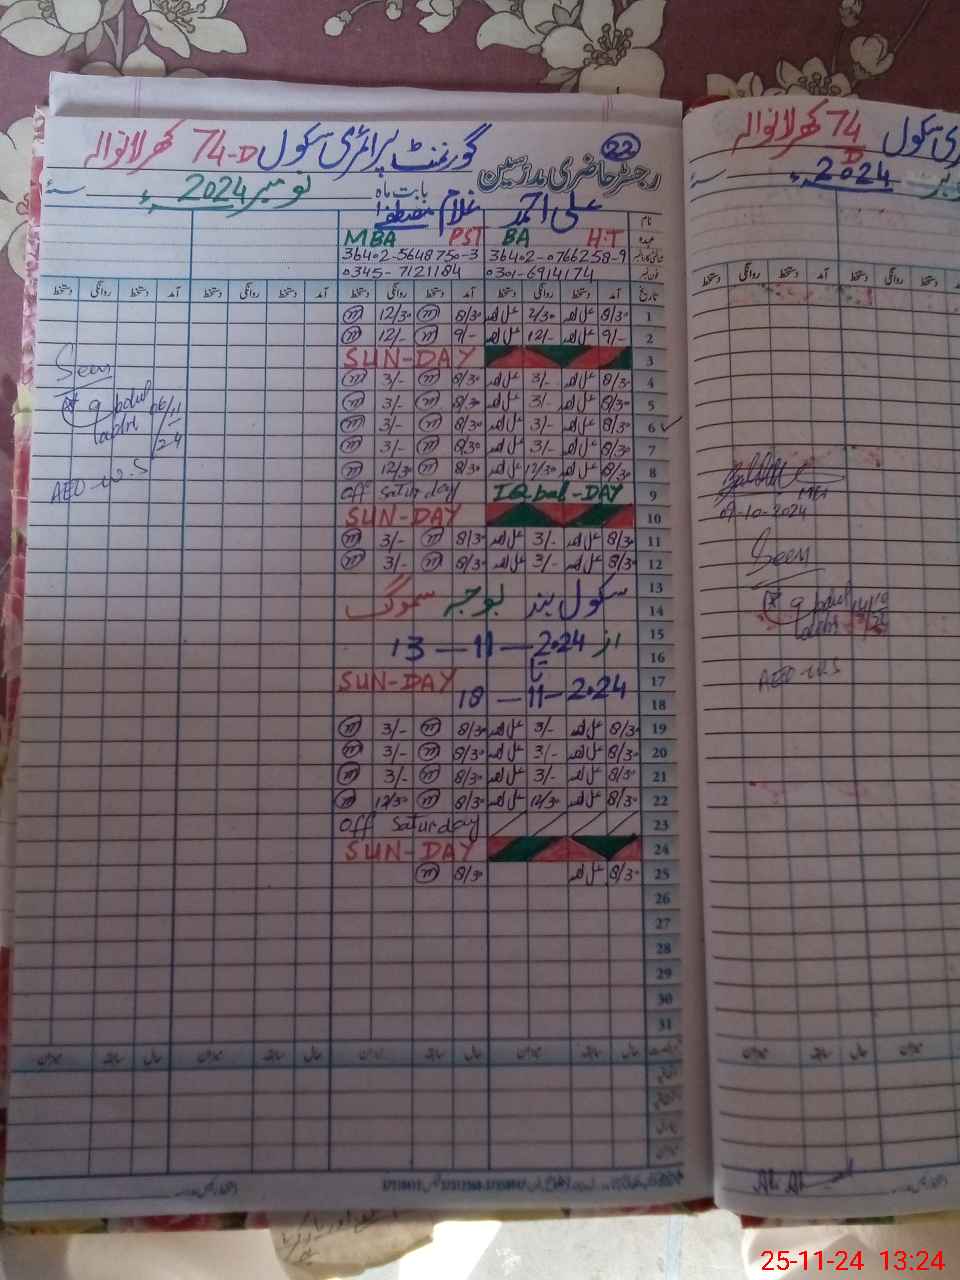 22
گورنمنٹ پرائمری سکول 74-D کھرلانوالہ
رجسٹر حاضری مدرسین
بابت ماہ نومبر 2024ء سنہ
نام علی احمد غلام مصطفےٰ
عہدہ H.T BA PST MBA
36402-0766258-9 36402-5648750-3
فون نمبر 0301-6914174 0345-7121184
تاریخ آمد دستخط روانگی دستخط آمد دستخط روانگی دستخط آمد دستخط روانگی دستخط آمد دستخط روانگی دستخط
1 8/30 علی احمد 2/30 علی احمد 8/30 m 12/30 m
2 9/- علی احمد 12/- علی احمد 9/- m 12/- m
3 SUN-DAY
4 8/30 علی احمد 3/- علی احمد 8/30 m 3/- m
5 8/30 علی احمد 3/- علی احمد 8/30 m 3/- m
6 8/30 علی احمد 3/- علی احمد 8/30 m 3/- m
7 8/30 علی احمد 3/- علی احمد 8/30 m 3/- m
8 8/30 علی احمد 12/30 علی احمد 8/30 m 12/30 m
9 IQbal-DAY off Saturday
10 SUN-DAY
11 8/30 علی احمد 3/- علی احمد 8/30 m 3/- m
12 8/30 علی احمد 3/- علی احمد 8/30 m 3/- m
13
14 سکول بند بوجہ سموگ
15
16 از 13-11-2024
تا
17 SUN-DAY
18 18-11-2024
19 8/30 علی احمد 3/- علی احمد 8/30 m 3/- m
20 8/30 علی احمد 3/- علی احمد 8/30 m 3/- m
21 8/30 علی احمد 3/- علی احمد 8/30 m 3/- m
22 8/30 علی احمد 12/30 علی احمد 8/30 m 12/30 m
23 off Saturday
24 SUN-DAY
25 8/30 علی احمد 8/30 m
26
27
28
29
30
31
Seen
06/11/24
AEO-W.S
سکول 74 D کھرلانوالہ
2024ء سنہ
09-10-2024
Seen
AEO-W.S
25-11-24 13:24